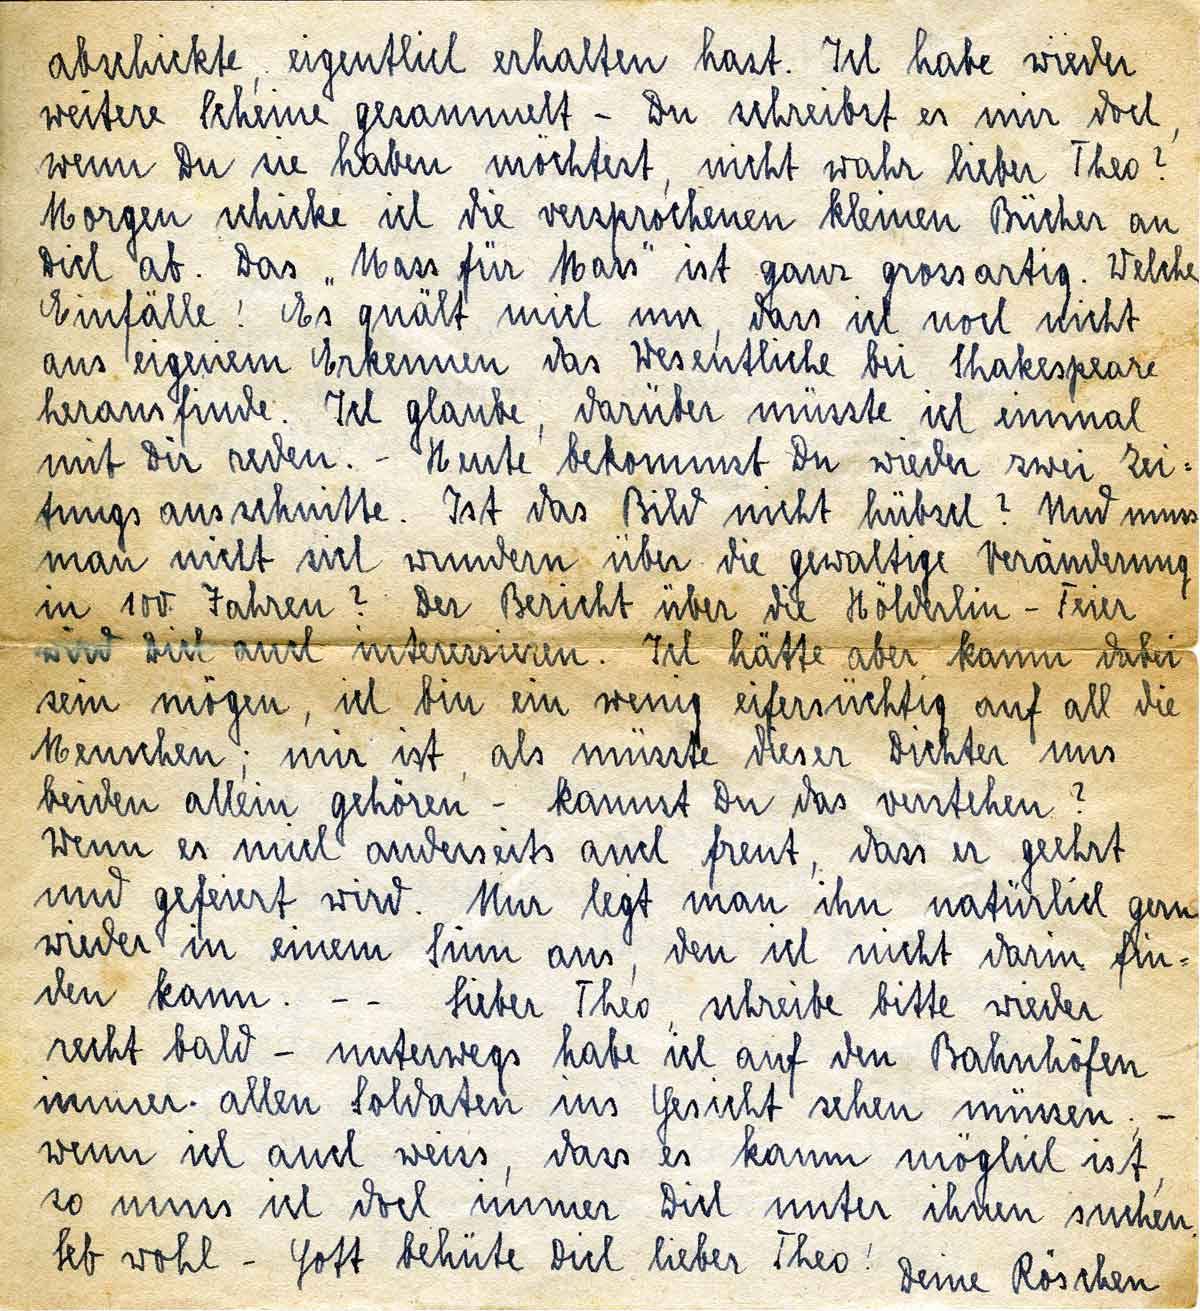 abschickte, eigentlich erhalten hast. Ich habe wieder
weitere Scheine gesammelt – Du schreibst es mir doch,
wenn Du sie haben möchtest, nicht wahr lieber Theo?
Morgen schicke ich die versprochenen kleinen Bücher an
Dich ab. Das „Mass für Mass" ist ganz grossartig. Welche
Einfälle! Es quält mich nur, dass ich noch nicht
aus eigenem Erkennen das Wesentliche bei Shakespeare
herausfinde. Ich glaube, darüber müsste ich einmal
mit Dir reden. – Heute bekommst Du wieder zwei Zei=
tungsausschnitte. Ist das Bild nicht hübsch? Und muss
man nicht sich wundern über die gewaltige Veränderung
in 100 Jahren? Der Bericht über die Hölderlin – Feier
wird Dich auch interessieren. Ich hätte aber kaum dabei
sein mögen, ich bin ein wenig eifersüchtig auf all die
Menschen; mir ist, als müsste dieser Dichter uns
beiden allein gehören – kannst Du das verstehen?
Wenn es mich anderseits auch freut, dass er geehrt
und gefeiert wird. Nur legt man ihn natürlich gern
wieder in einem Sinn aus, den ich nicht darin fin=
den kann. – – Lieber Theo, schreibe bitte wieder
recht bald – unterwegs habe ich auf den Bahnhöfen
immer allen Soldaten ins Gesicht sehen müssen; –
wenn ich auch weiss, dass es kaum möglich ist,
so muss ich doch immer Dich unter ihnen suchen.
Leb wohl – Gott behüte Dich lieber Theo!
Deine Röschen